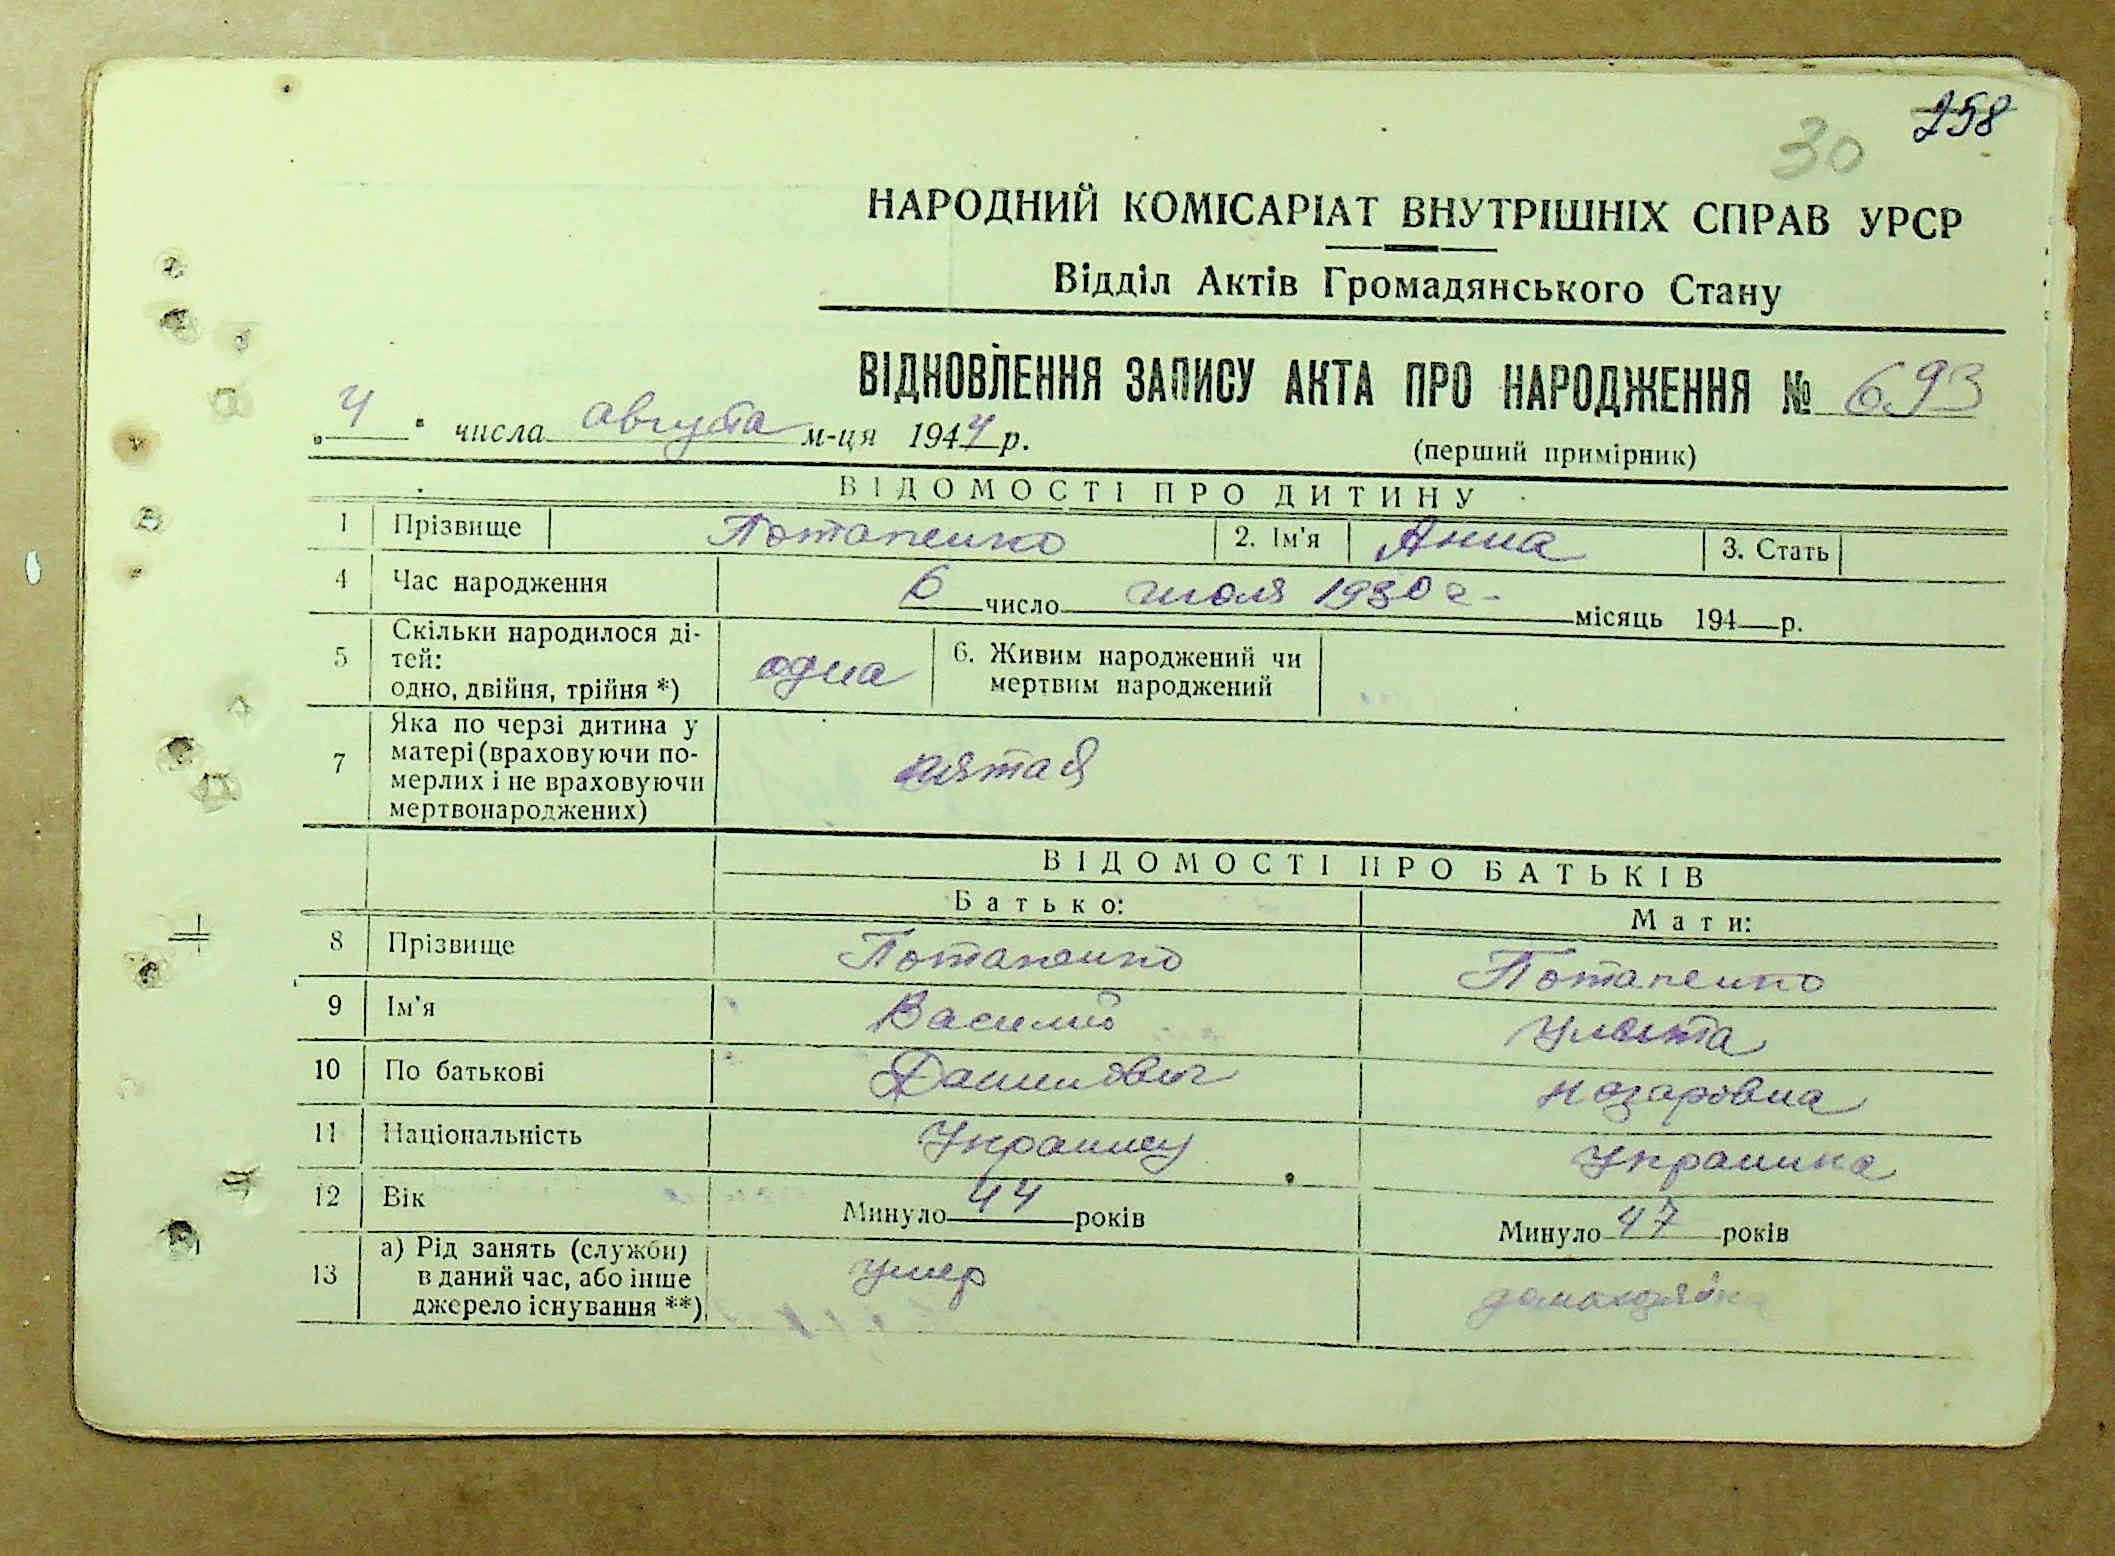 258
30
НАРОДНИЙ КОМІСАРІАТ ВНУТРІШНІХ СПРАВ УРСР
Відділ Актів Громадянського Стану
ВІДНОВЛЕННЯ ЗАПИСУ АКТА ПРО НАРОДЖЕННЯ № 693
„4" числа августа м-ця 1944 р.
(перший примірник)
ВІДОМОСТІ ПРО ДИТИНУ
1 Прізвище Потапенко 2. Ім'я Анна 3. Стать
4 Час народження 6 число июля 1930 г. місяць 194 р.
5 Скільки народилося ді-
тей:
одно, двійня, трійня *) одна 6. Живим народжений чи
мертвим народжений
7 Яка по черзі дитина у
матері (враховуючи по-
мерлих і не враховуючи
мертвонароджених) пятая
ВІДОМОСТІ ПРО БАТЬКІВ
Батько: Мати:
8 Прізвище Потапенко Потапенко
9 Ім'я Василий Улита
10 По батькові Данилович Назаровна
11 Національність Украинец Украинка
12 Вік Минуло 44 років Минуло 47 років
13 а) Рід занять (служби)
в даний час, або інше
джерело існування **) умер домохозяйка